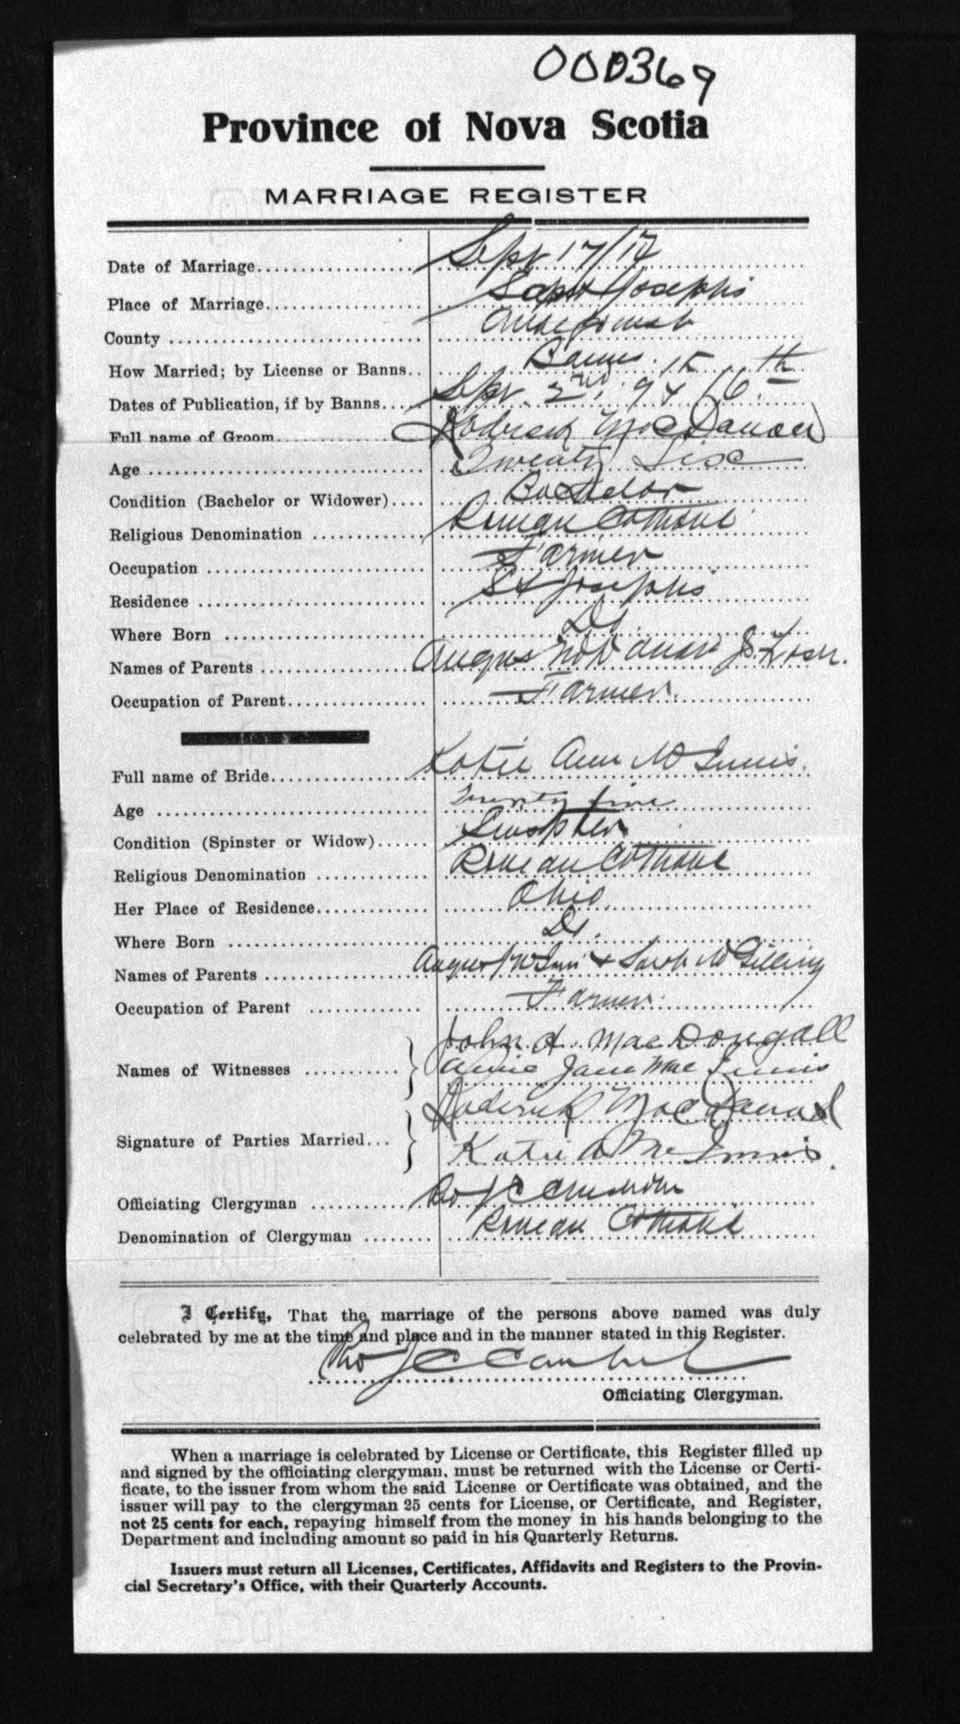 000369
Province of Nova Scotia
MARRIAGE REGISTER
Date of Marriage Sept 17/17
Place of Marriage St Josephs
County Antigonish
How Married; by License or Banns Banns.
Dates of Publication, if by Banns Sept. 2nd, 9th 16th
Full name of Groom Roderick MacDonald
Age Twenty Six
Condition (Bachelor or Widower) Bachelor
Religious Denomination Roman Catholic
Occupation Farmer
Residence St Josephs
Where Born Do.
Names of Parents Angus McDonald
Occupation of Parent Farmer.
Full name of Bride Katie Ann McInnis.
Age Twenty five
Condition (Spinster or Widow) Spinster
Religious Denomination Roman Catholic
Her Place of Residence Ohio.
Where Born Do.
Names of Parents Angus McInnis & Sarah McGillivray
Occupation of Parent Farmer.
Names of Witnesses John A. MacDougall
Annie Jane MacInnis
Signature of Parties Married Roderick MacDonald
Katie A McInnis.
Officiating Clergyman Rev J C Chisholm
Denomination of Clergyman Roman Catholic
I Certify, That the marriage of the persons above named was duly
celebrated by me at the time and place and in the manner stated in this Register.
Rev J C
Officiating Clergyman.
When a marriage is celebrated by License or Certificate, this Register filled up
and signed by the officiating clergyman, must be returned with the License or Certi-
ficate, to the issuer from whom the said License or Certificate was obtained, and the
issuer will pay to the clergyman 25 cents for License, or Certificate, and Register,
not 25 cents for each, repaying himself from the money in his hands belonging to the
Department and including amount so paid in his Quarterly Returns.
Issuers must return all Licenses, Certificates, Affidavits and Registers to the Provin-
cial Secretary's Office, with their Quarterly Accounts.